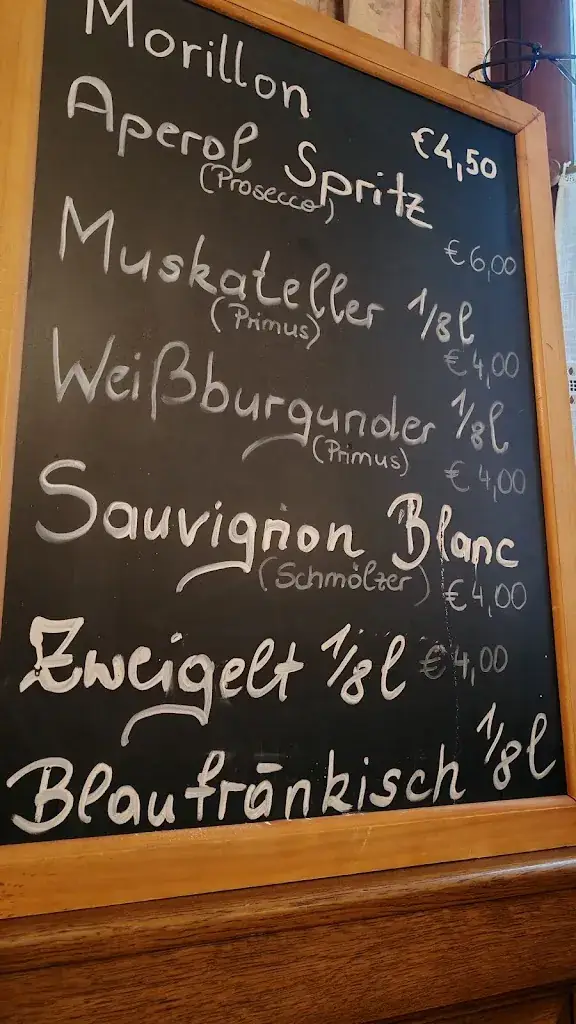 Morillon
€4,50
Aperol Spritz
(Prosecco)
€6,00
Muskateller 1/8l
(Primus)
€4,00
Weißburgunder 1/8l
(Primus)
€4,00
Sauvignon Blanc
(Schmölzer) €4,00
Zweigelt 1/8l €4,00
Blaufränkisch 1/8l